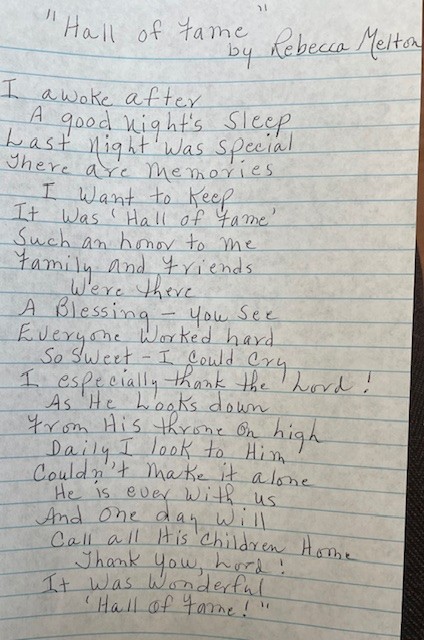 "Hall of Fame"
by Rebecca Melton
I awoke after
A good night's sleep
Last night was special
There are memories
I want to keep
It was 'Hall of Fame'
Such an honor to me
Family and Friends
Were there
A Blessing - you see
Everyone worked hard
So sweet - I could cry
I especially thank the Lord!
As He looks down
From His throne on high
Daily I look to Him
Couldn't make it alone
He is ever with us
And one day will
Call all His children Home
Thank you, Lord!
It was wonderful
'Hall of Fame!"